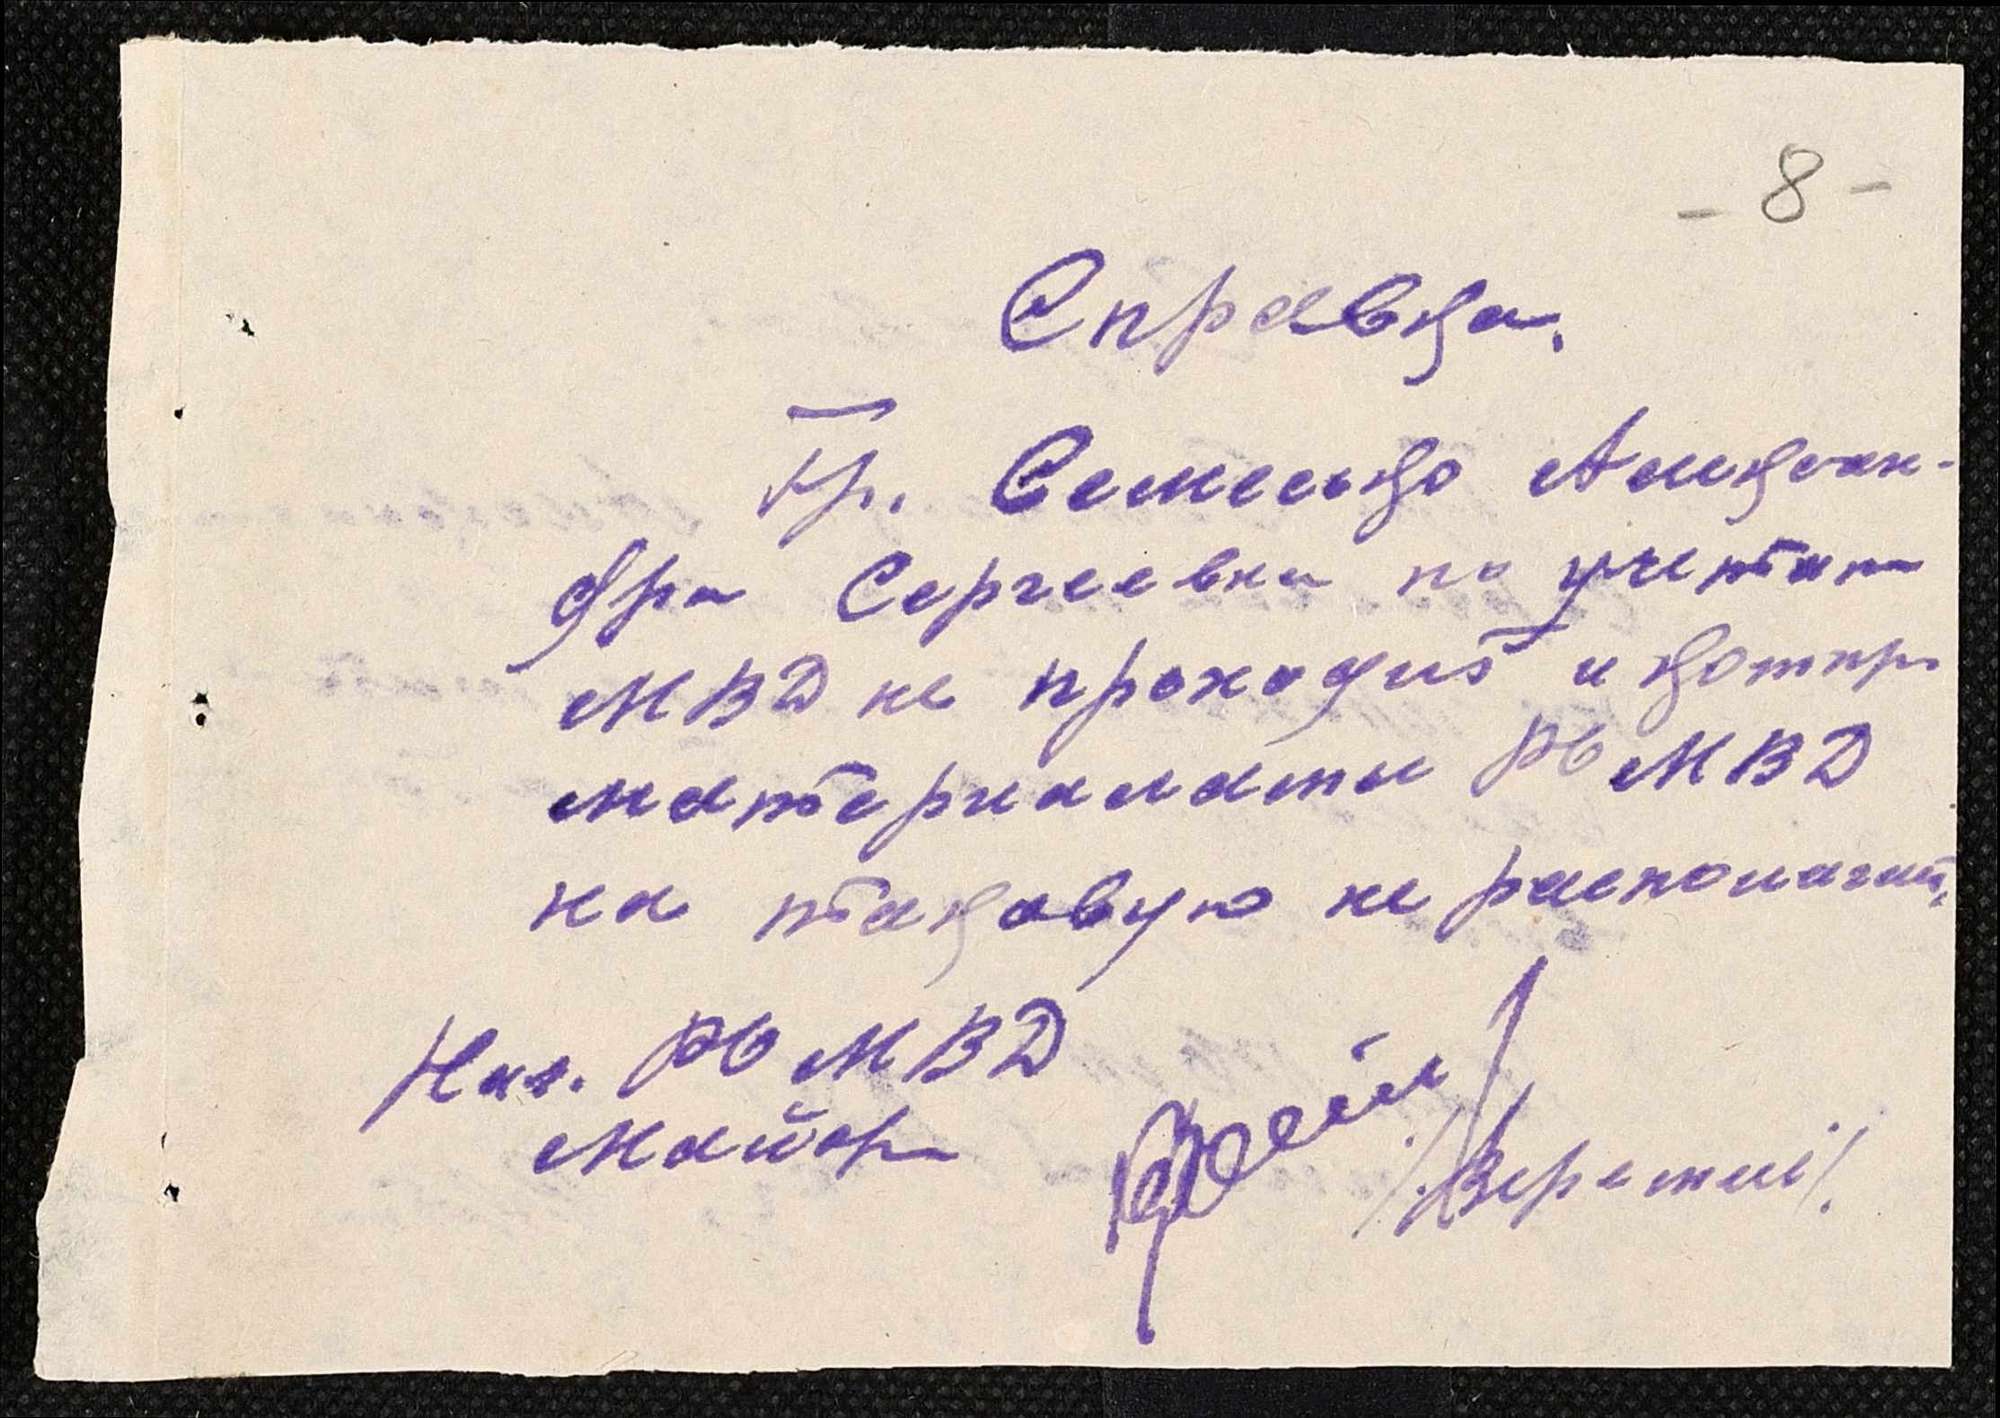 - 8 -
Справка.
Гр. Семенько Алексан-
дра Сергеевна по учетам
МВД не проходит и
материалами РО МВД
на таковую не располагаем.
Нач. РО МВД
Майор